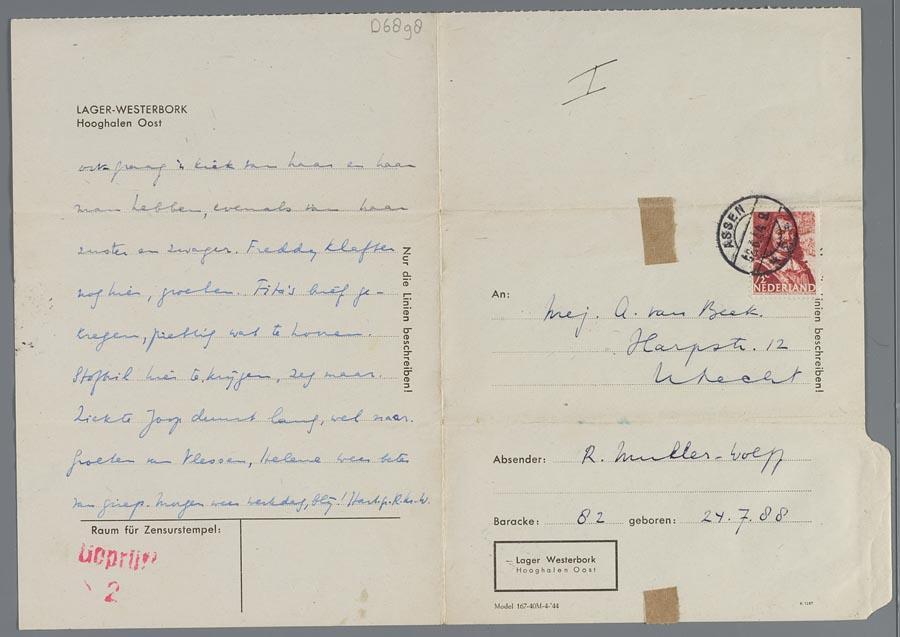 D6898
LAGER-WESTERBORK
Hooghalen Oost
graag 'n kiek van haar en haar
man hebben, evenals van haar
zuster en zwager. Freddy Klafter
nog hier, groeten. Fita's brief ge-
kregen, prettig wat te horen.
Stofbril hier te krijgen, zeg maar.
Ziekte Joop duurt lang, wel naar.
Groeten van Vlessen, Helene weer beter
van griep. Morgen weer werkdag, blij!
Nur die Linien beschreiben!
Raum für Zensurstempel:
Geprüft
2
I
ASSEN
NEDERLAND
An:
Mej. A. van Beek.
Harpstr. 12
Utrecht
inien beschreiben!
Absender: R. Muller-Wolff
Baracke: 82 geboren: 24.7.88
Lager Westerbork
Hooghalen Oost
Model 167-40M-4-'44